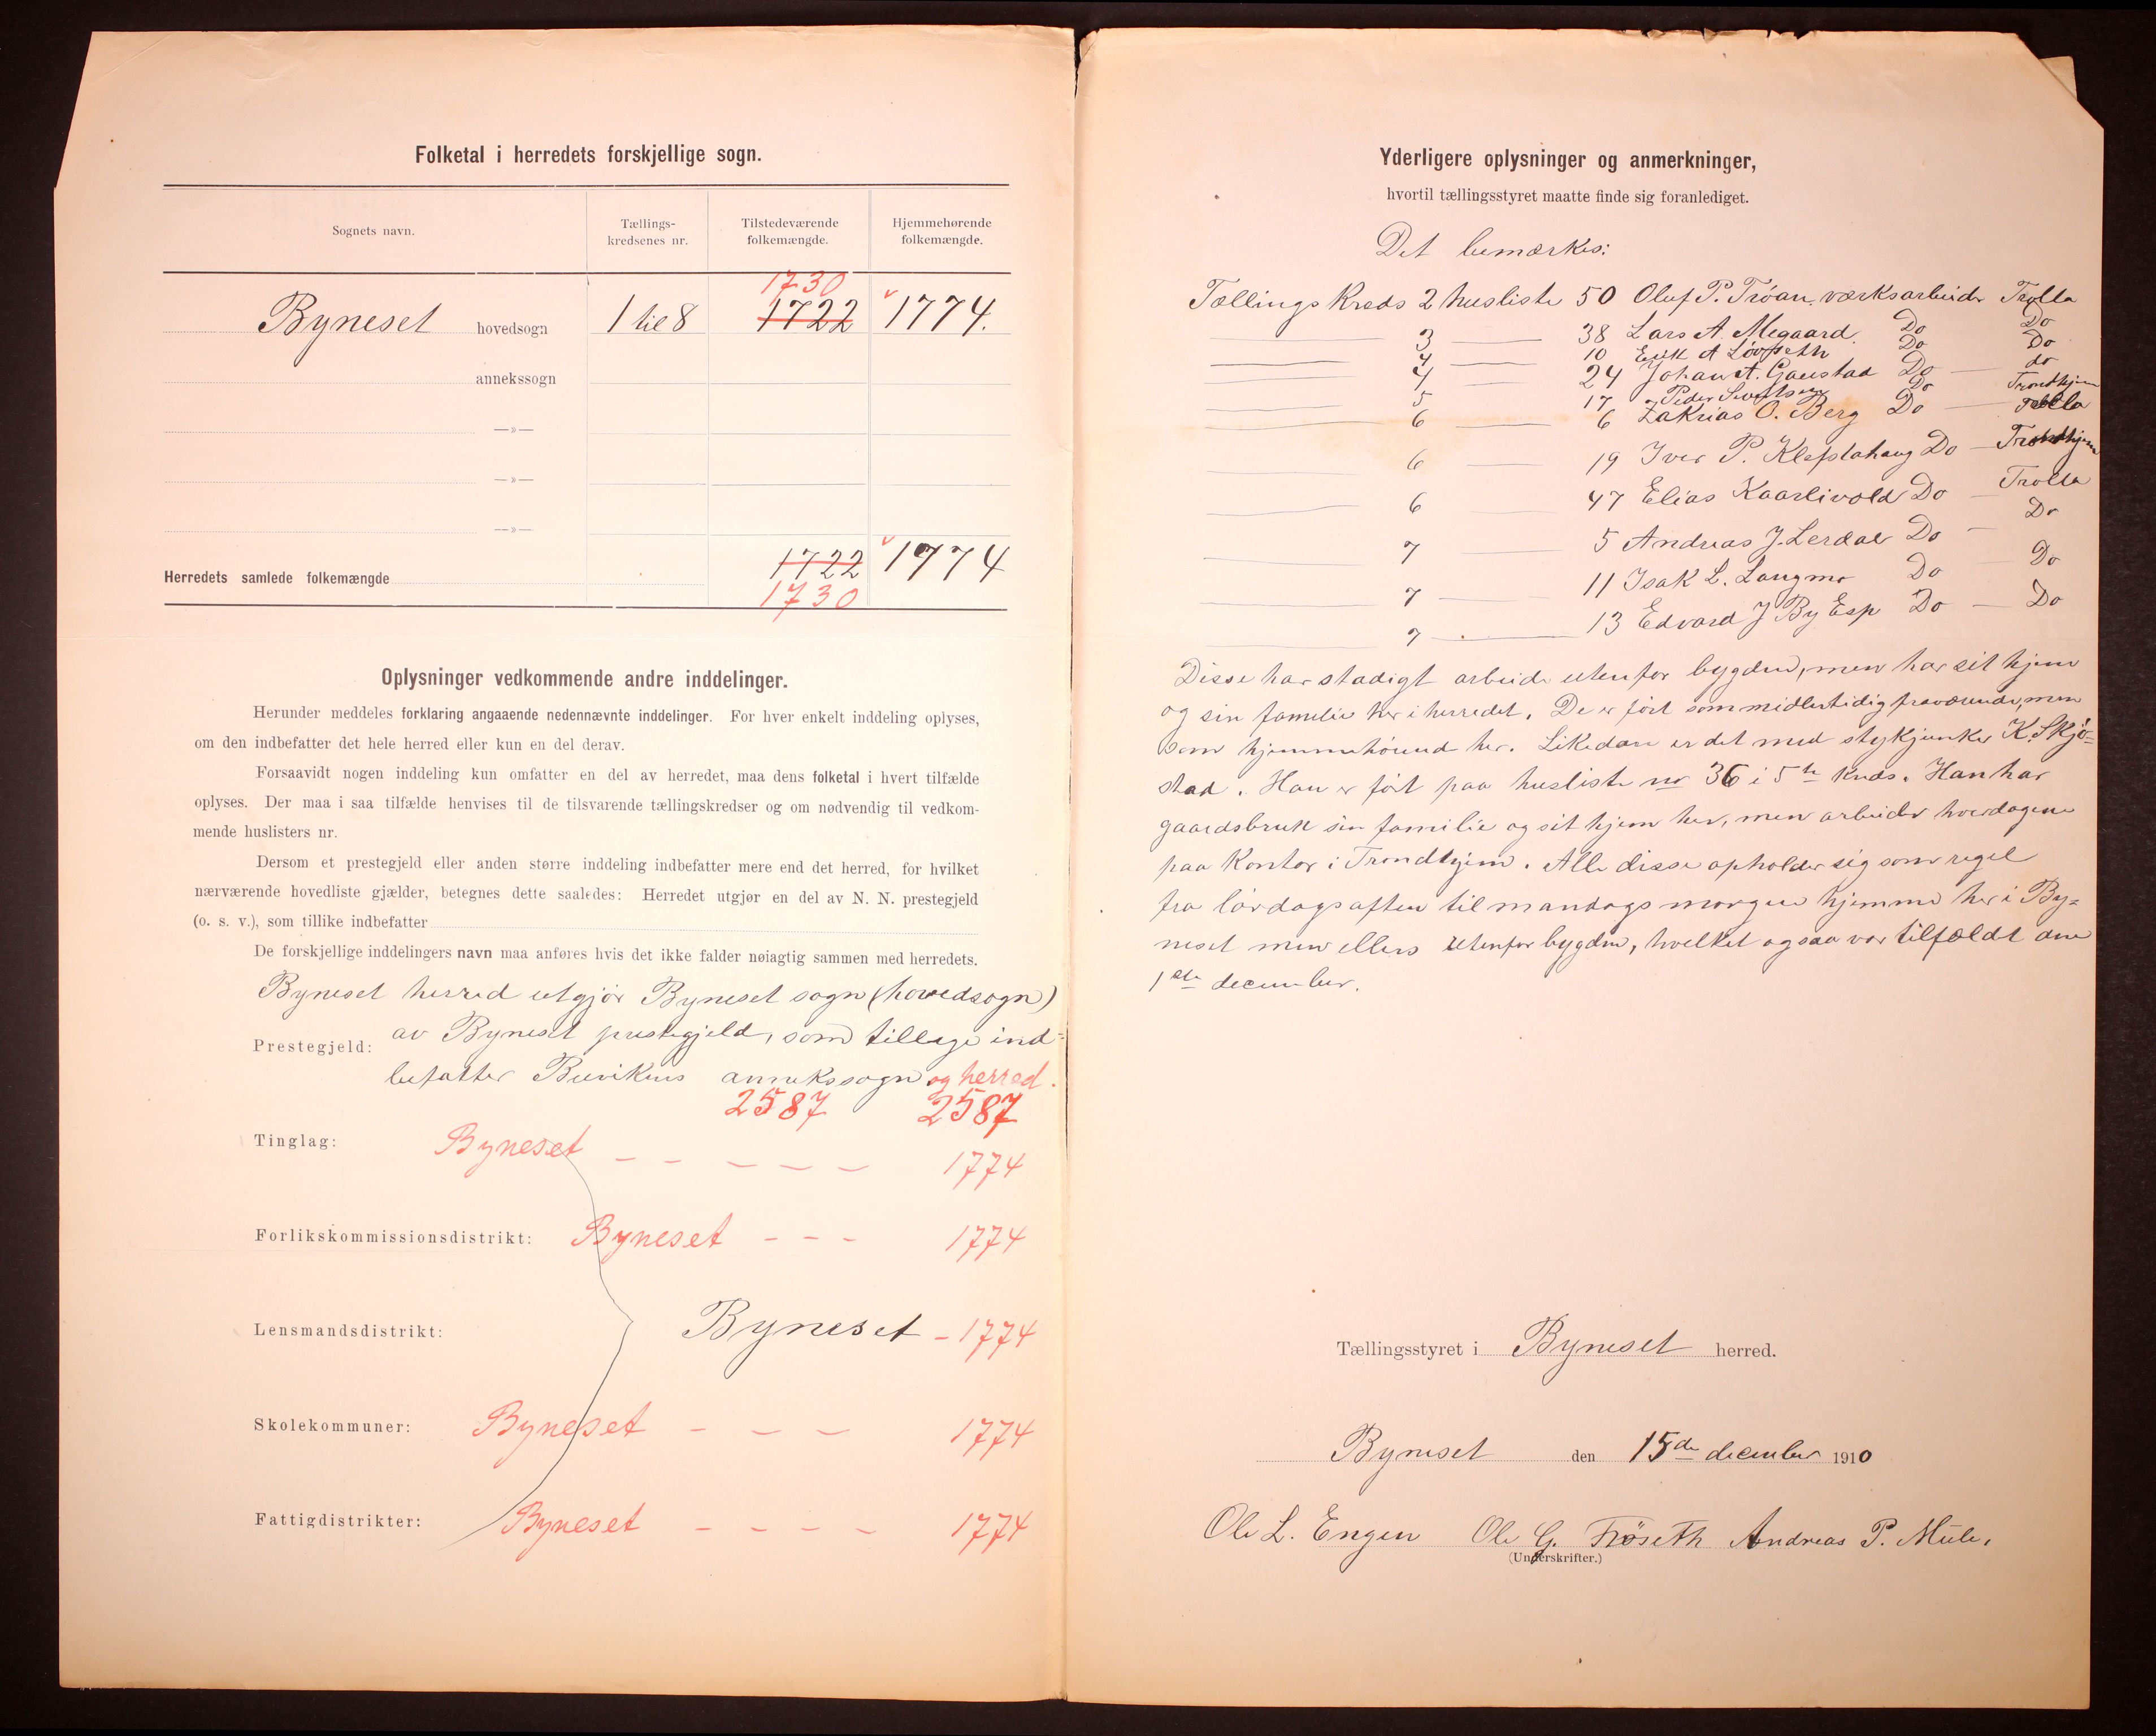 Folketal i herredets forskjellige sogn.
Sognets navn.
Tællings-
kredsenes nr.
Tilstedeværende
folkemængde.
Hjemmehørende
folkemængde.
1730
Byneset hovedsogn 1 til 8 1722 1774.
annekssogn
—»—
—»—
—»—
Herredets samlede folkemængde 1722 1774
1730
Oplysninger vedkommende andre inddelinger.
Herunder meddeles forklaring angaaende nedennævnte inddelinger. For hver enkelt inddeling oplyses,
om den indbefatter det hele herred eller kun en del derav.
Forsaavidt nogen inddeling kun omfatter en del av herredet, maa dens folketal i hvert tilfælde
oplyses. Der maa i saa tilfælde henvises til de tilsvarende tællingskredser og om nødvendig til vedkom-
mende huslisters nr.
Dersom et prestegjeld eller anden større inddeling indbefatter mere end det herred, for hvilket
nærværende hovedliste gjælder, betegnes dette saaledes: Herredet utgjør en del av N. N. prestegjeld
(o. s. v.), som tillike indbefatter
De forskjellige inddelingers navn maa anføres hvis det ikke falder nøiagtig sammen med herredets.
Byneset herred utgjør Byneset sogn (hovedsogn)
Prestegjeld: av Byneset prestegjeld, som tillige ind-
befatter Buvikens annekssogn og herred.
2587 2587
Tinglag: Byneset - - - - - 1774
Forlikskommissionsdistrikt: Byneset - - - 1774
Lensmandsdistrikt: Byneset - 1774
Skolekommuner: Byneset - - - 1774
Fattigdistrikter: Byneset - - - - 1774
Yderligere oplysninger og anmerkninger,
hvortil tællingsstyret maatte finde sig foranlediget.
Det bemærkes:
Tællings Kreds 2 husliste 50 Oluf P. Tröan værksarbeider Trolla
3 38 Lars A. Megaard Do Do
4 10 Erik A Lövseth Do Do
4 24 Johan A. Gaustad Do do
5 17 Peder Do Trondhjem
6 6 Zakrias O. Berg Do Trolla
6 19 Iver P. Do Trondhjem
6 47 Elias Kaarlivold Do Trolla
7 5 Andreas J. Lerdal Do Do
7 11 Isak L. Langmo Do Do
7 13 Edvard J By Esp Do Do
Disse har stadigt arbeide utenfor bygden, men har sit hjem
og sin familie her i herredet. De er fört som midlertidig fraværende, men
som hjemmehörend her. Likedan er det med stykjunker K. Skjö-
stad. Han er fört paa husliste no 36 i 5te kreds. Han har
gaardsbruk sin familie og sit hjem her, men arbeider hverdagene
paa Kontor i Trondhjem. Alle disse opholder sig som regel
fra lördagsaften til mandagsmorgen hjemme her i By-
neset men ellers utenfor bygden, hvelket ogsaa var tilfældt den
1ste december.
Tællingsstyret i Byneset herred.
Byneset den 15de december 1910
Ole L. Engen Ole G. Fröseth Andreas P. Mule.
(Underskrifter.)